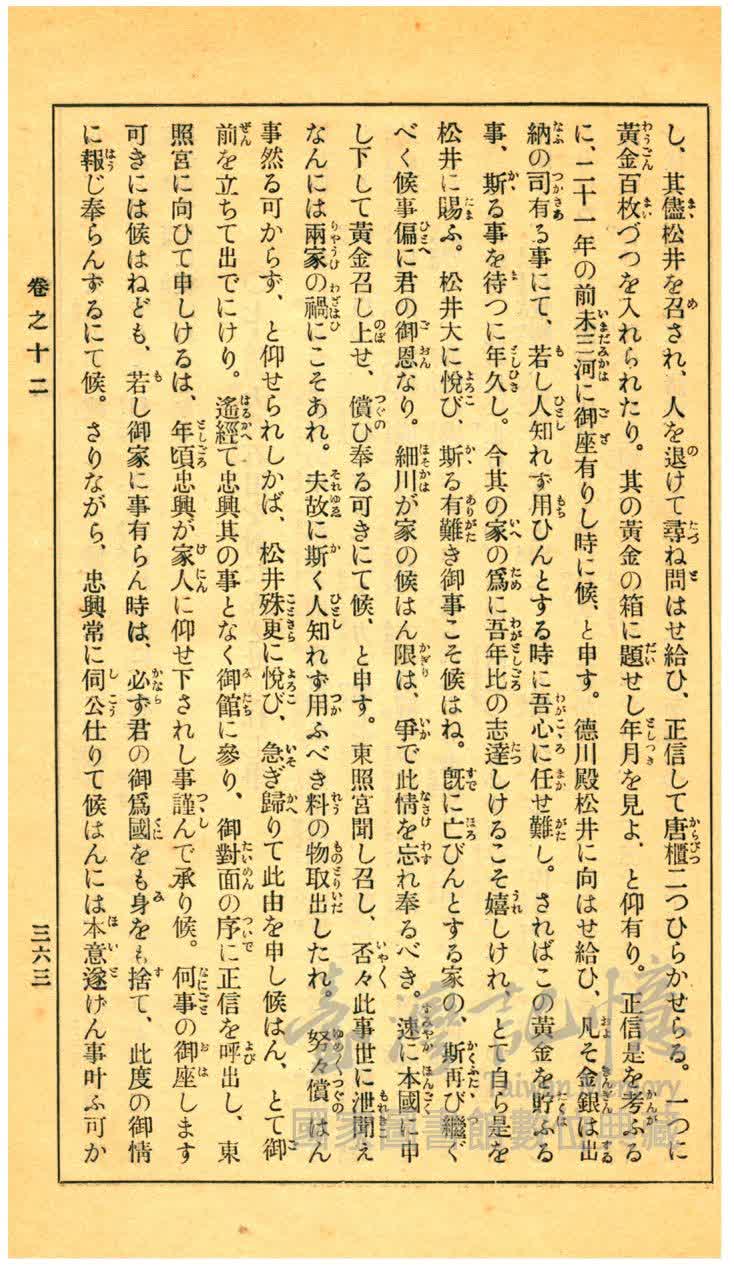 し、其儘松井を召され、人を退けて尋ね問はせ給ひ、正信して唐櫃二つひらかせらる。一つに
黃金百枚づつを入れられたり。其の黃金の箱に題せし年月を見よ、と仰有り。正信是を考ふる
に、二十一年の前未三河に御座有りし時に候、と申す。德川殿松井に向はせ給ひ、凡そ金銀は出
納の司有る事にて、若し人知れず用ひんとする時に吾心に任せ難し。さればこの黃金を貯ふる
事、斯る事を待つに年久し。今其の家の爲に吾年比の志達しけるこそ嬉しけれ、とて自ら是を
松井に賜ふ。松井大に悅び、斯る有難き御事こそ候はね。旣に亡びんとする家の、斯再び繼ぐ
べく候事偏に君の御恩なり。細川が家の候はん限は、爭で此情を忘れ奉るべき。速に本國に申
し下して黃金召し上せ、償ひ奉る可きにて候、と申す。東照宮聞し召し、否々此事世に泄聞え
なんには兩家の禍にこそあれ。夫故に斯く人知れず用ふべき料の物取出したれ。努々償はん
事然る可からず、と仰せられしかば、松井殊更に悅び、急ぎ歸りて此由を申し候はん、とて御
前を立ちて出でにけり。遙經て忠興其の事となく御館に參り、御對面の序に正信を呼出し、東
照宮に向ひて申しけるは、年頃忠興が家人に仰せ下されし事謹んで承り候。何事の御座します
可きには候はねども、若し御家に事有らん時は、必ず君の御爲國をも身をも捨て、此度の御情
に報じ奉らんずるにて候。さりながら、忠興常に伺公仕りて候はんには本意遂げん事叶ふ可か
卷之十二
三六三
臺灣記憶
Taiwan Memory
國家圖書館數位典藏